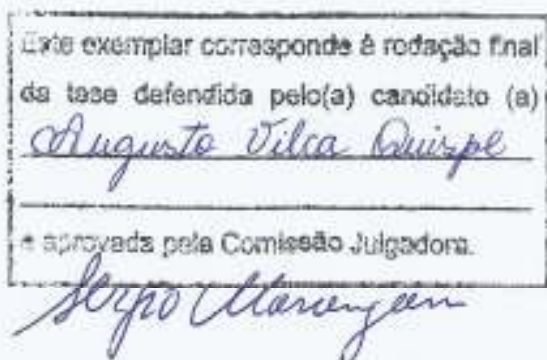 Este exemplar corresponde à redação final
da tese defendida pelo(a) candidato (a)
Augusto Vilca Quispe
e aprovada pela Comissão Julgadora.
Sergio